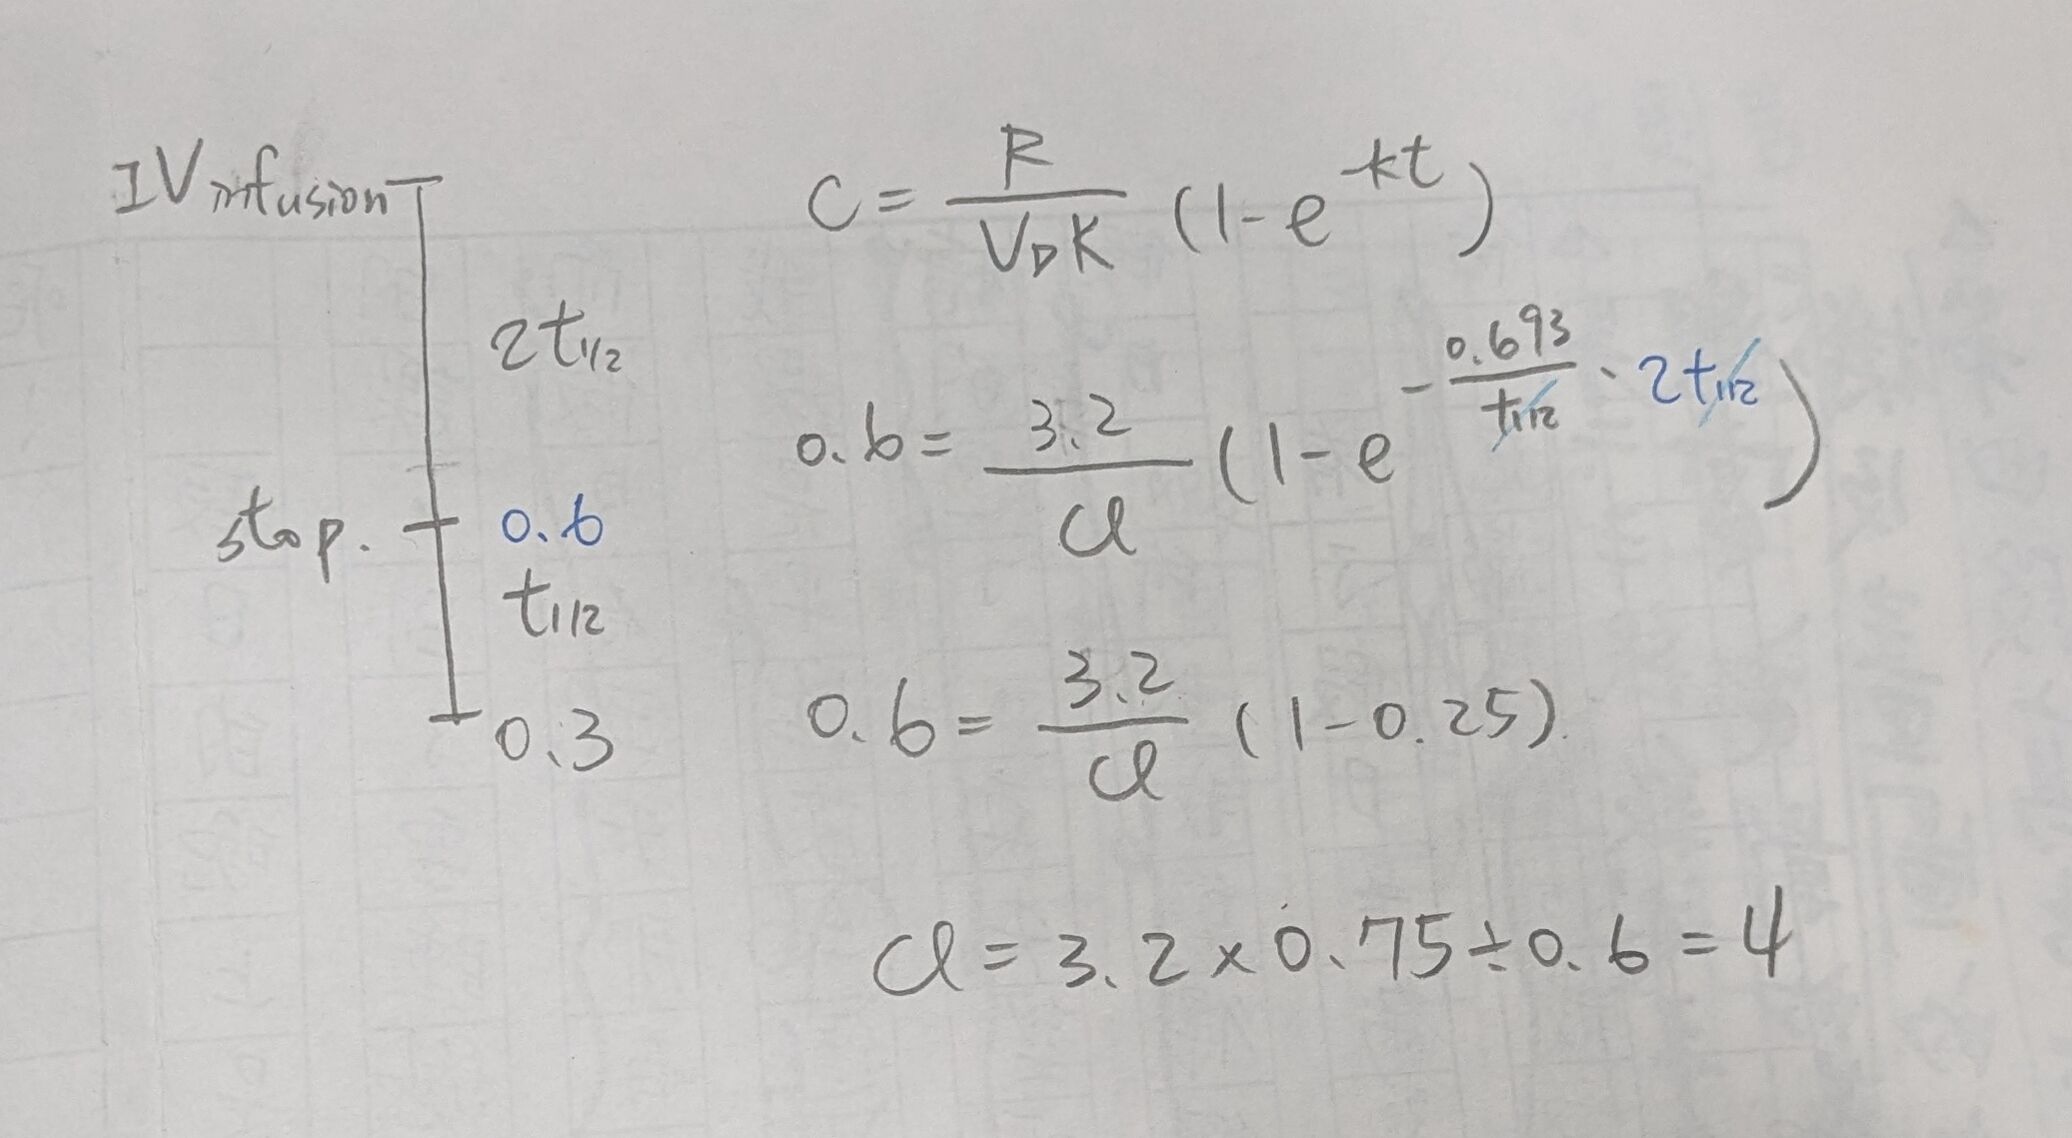 IV infusion
2t1/2
stop. 0.6
t1/2
0.3
C = R / VDK (1-e^-kt)
0.6 = 3.2 / Cl (1-e^-0.693/t1/2 · 2t1/2)
0.6 = 3.2 / Cl (1-0.25).
Cl = 3.2 × 0.75 ÷ 0.6 = 4